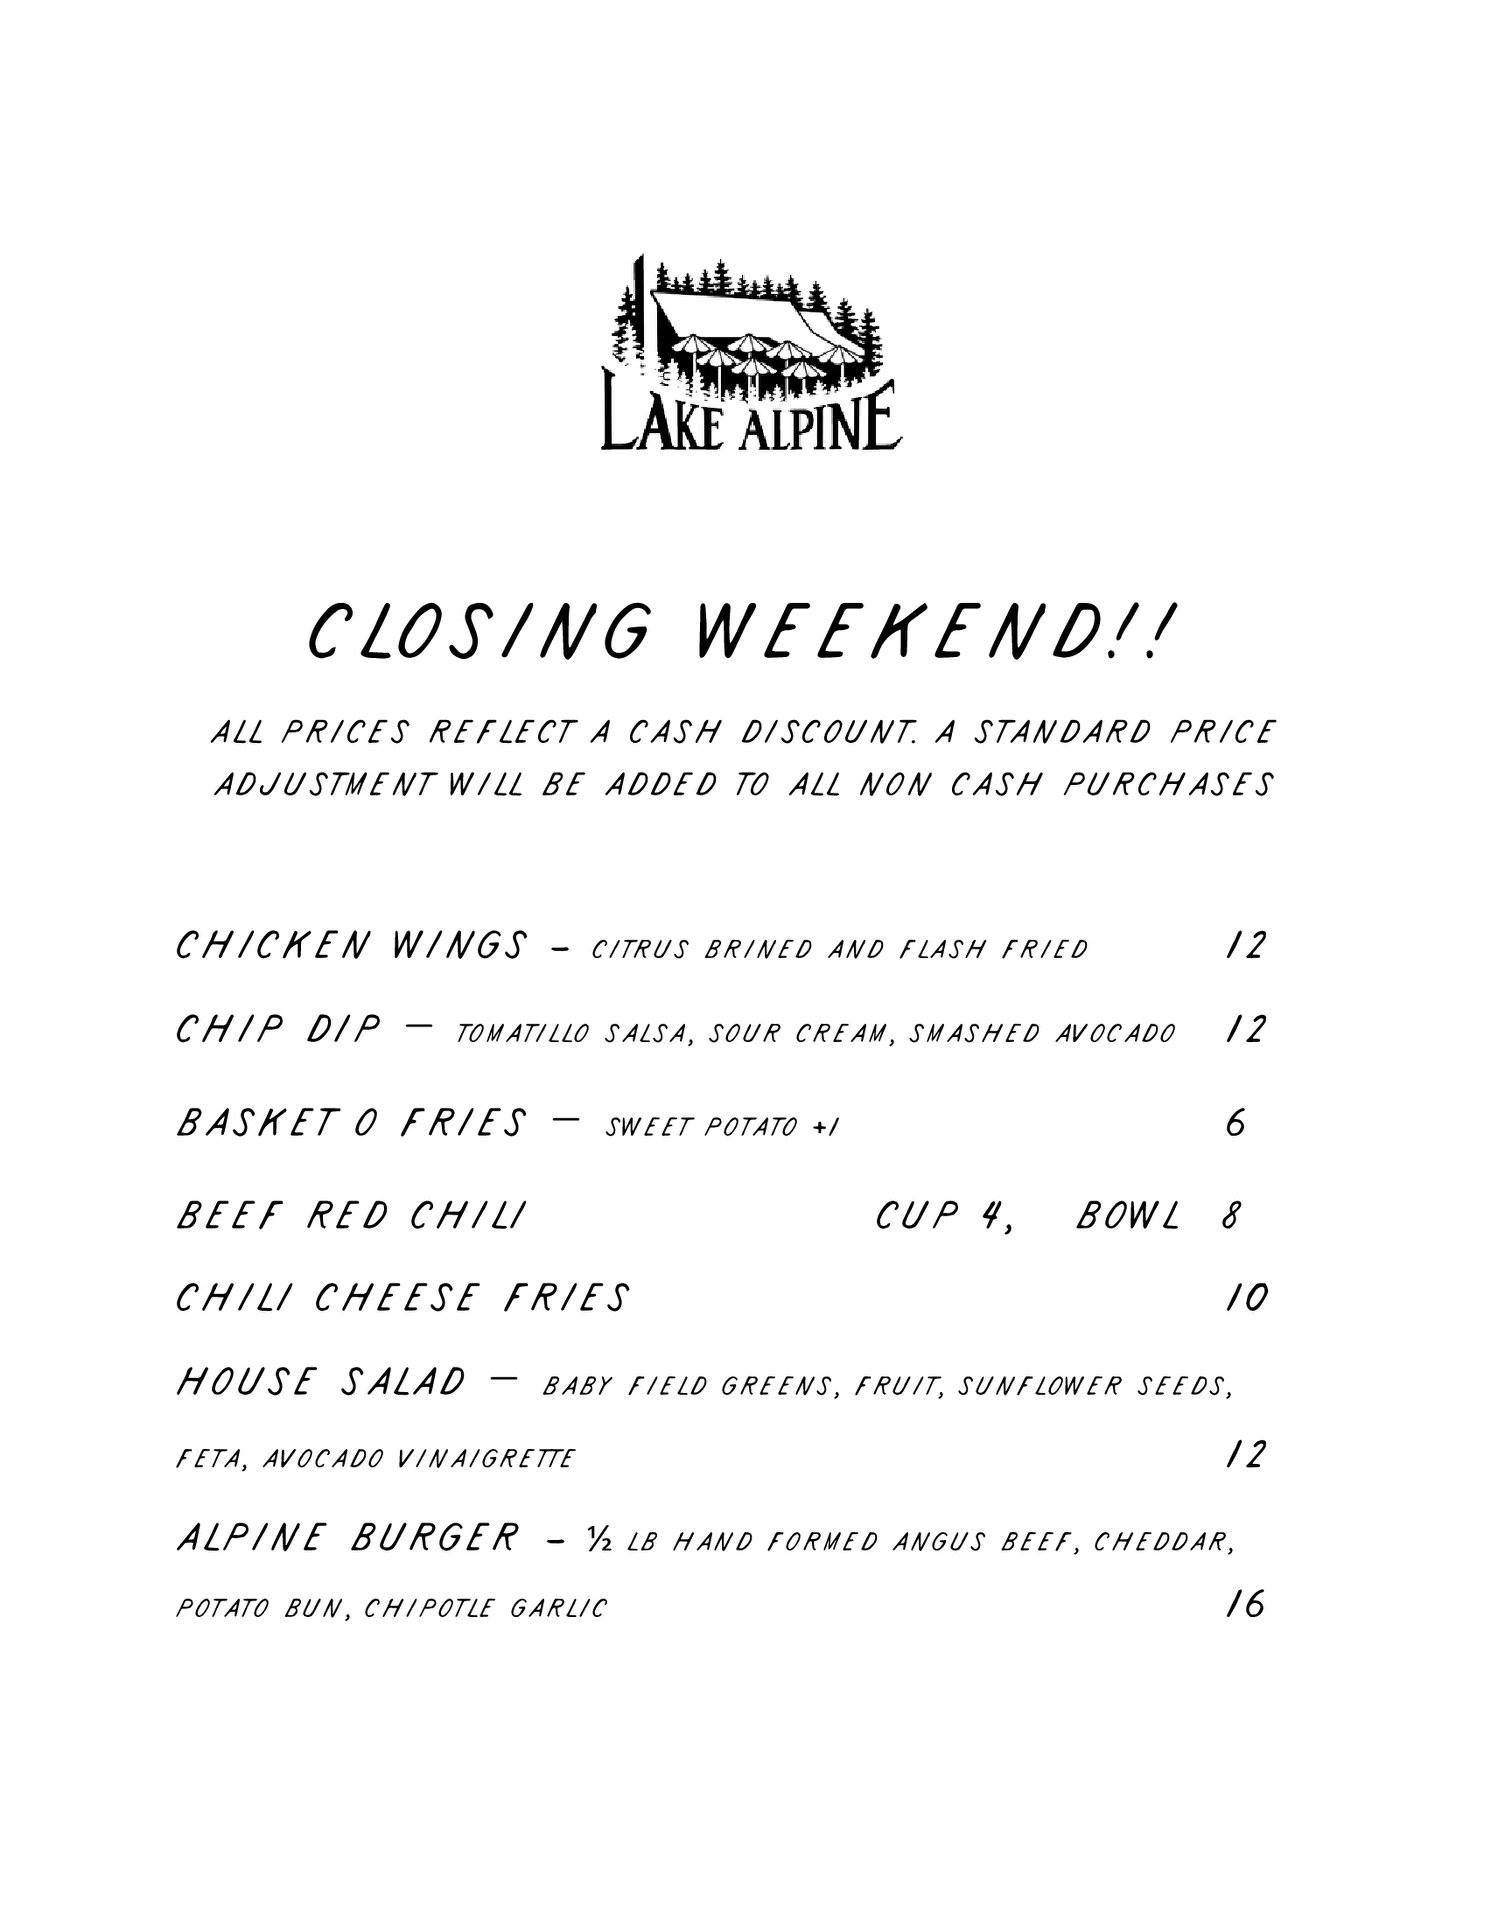 LAKE ALPINE
CLOSING WEEKEND!!
ALL PRICES REFLECT A CASH DISCOUNT. A STANDARD PRICE
ADJUSTMENT WILL BE ADDED TO ALL NON CASH PURCHASES
CHICKEN WINGS – CITRUS BRINED AND FLASH FRIED 12
CHIP DIP — TOMATILLO SALSA, SOUR CREAM, SMASHED AVOCADO 12
BASKET O FRIES — SWEET POTATO +1 6
BEEF RED CHILI CUP 4, BOWL 8
CHILI CHEESE FRIES 10
HOUSE SALAD — BABY FIELD GREENS, FRUIT, SUNFLOWER SEEDS,
FETA, AVOCADO VINAIGRETTE 12
ALPINE BURGER – ½ LB HAND FORMED ANGUS BEEF, CHEDDAR,
POTATO BUN, CHIPOTLE GARLIC 16